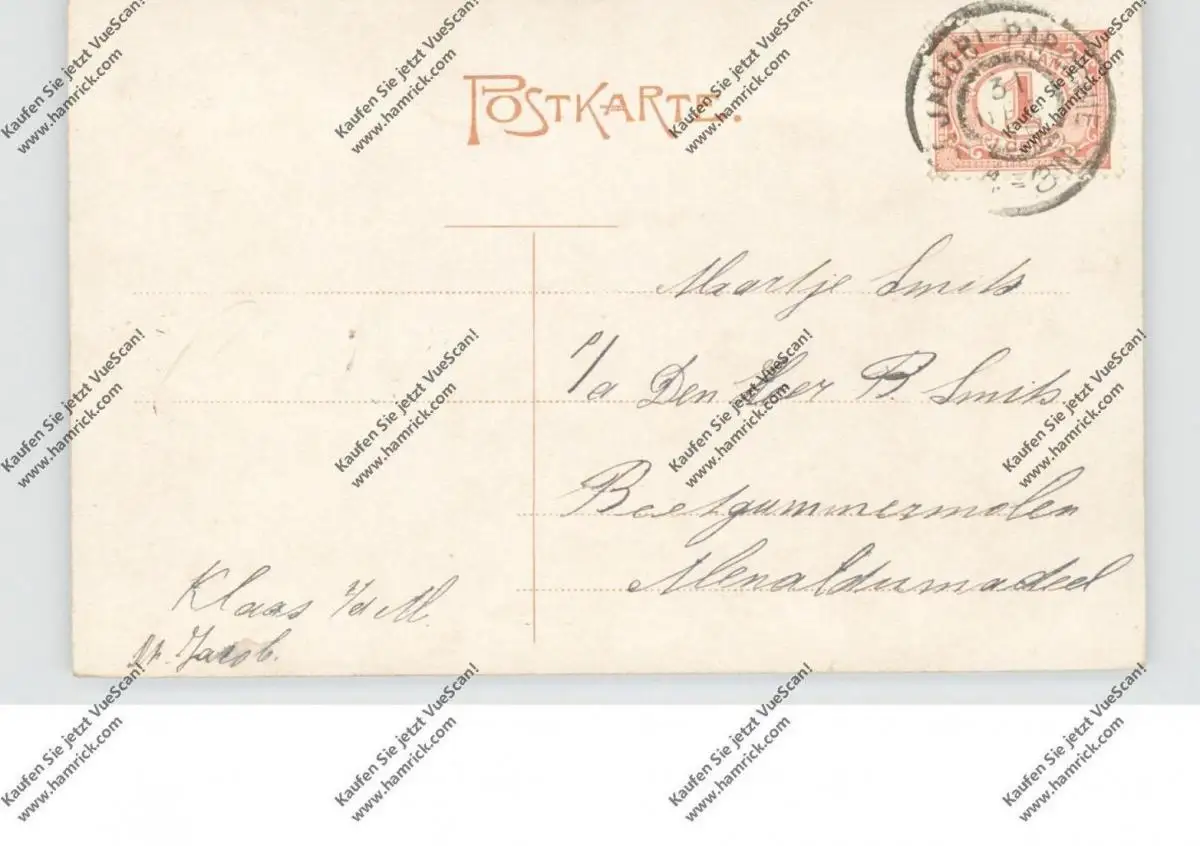 POSTKARTE.
JACOBI-PAR
NEDERLAND
31
1
Maartje Smits
p/a Den Heer B. Smits
Beetgummermolen
Menaldumadeel
Klaas v/d M.
St. Jacob.
Kaufen Sie jetzt VueScan!
www.hamrick.com
Kaufen Sie jetzt VueScan!
www.hamrick.com
Kaufen Sie jetzt VueScan!
www.hamrick.com
Kaufen Sie jetzt VueScan!
www.hamrick.com
Kaufen Sie jetzt VueScan!
www.hamrick.com
Kaufen Sie jetzt VueScan!
www.hamrick.com
Kaufen Sie jetzt VueScan!
www.hamrick.com
Kaufen Sie jetzt VueScan!
www.hamrick.com
Kaufen Sie jetzt VueScan!
www.hamrick.com
Kaufen Sie jetzt VueScan!
www.hamrick.com
Kaufen Sie jetzt VueScan!
www.hamrick.com
Kaufen Sie jetzt VueScan!
www.hamrick.com